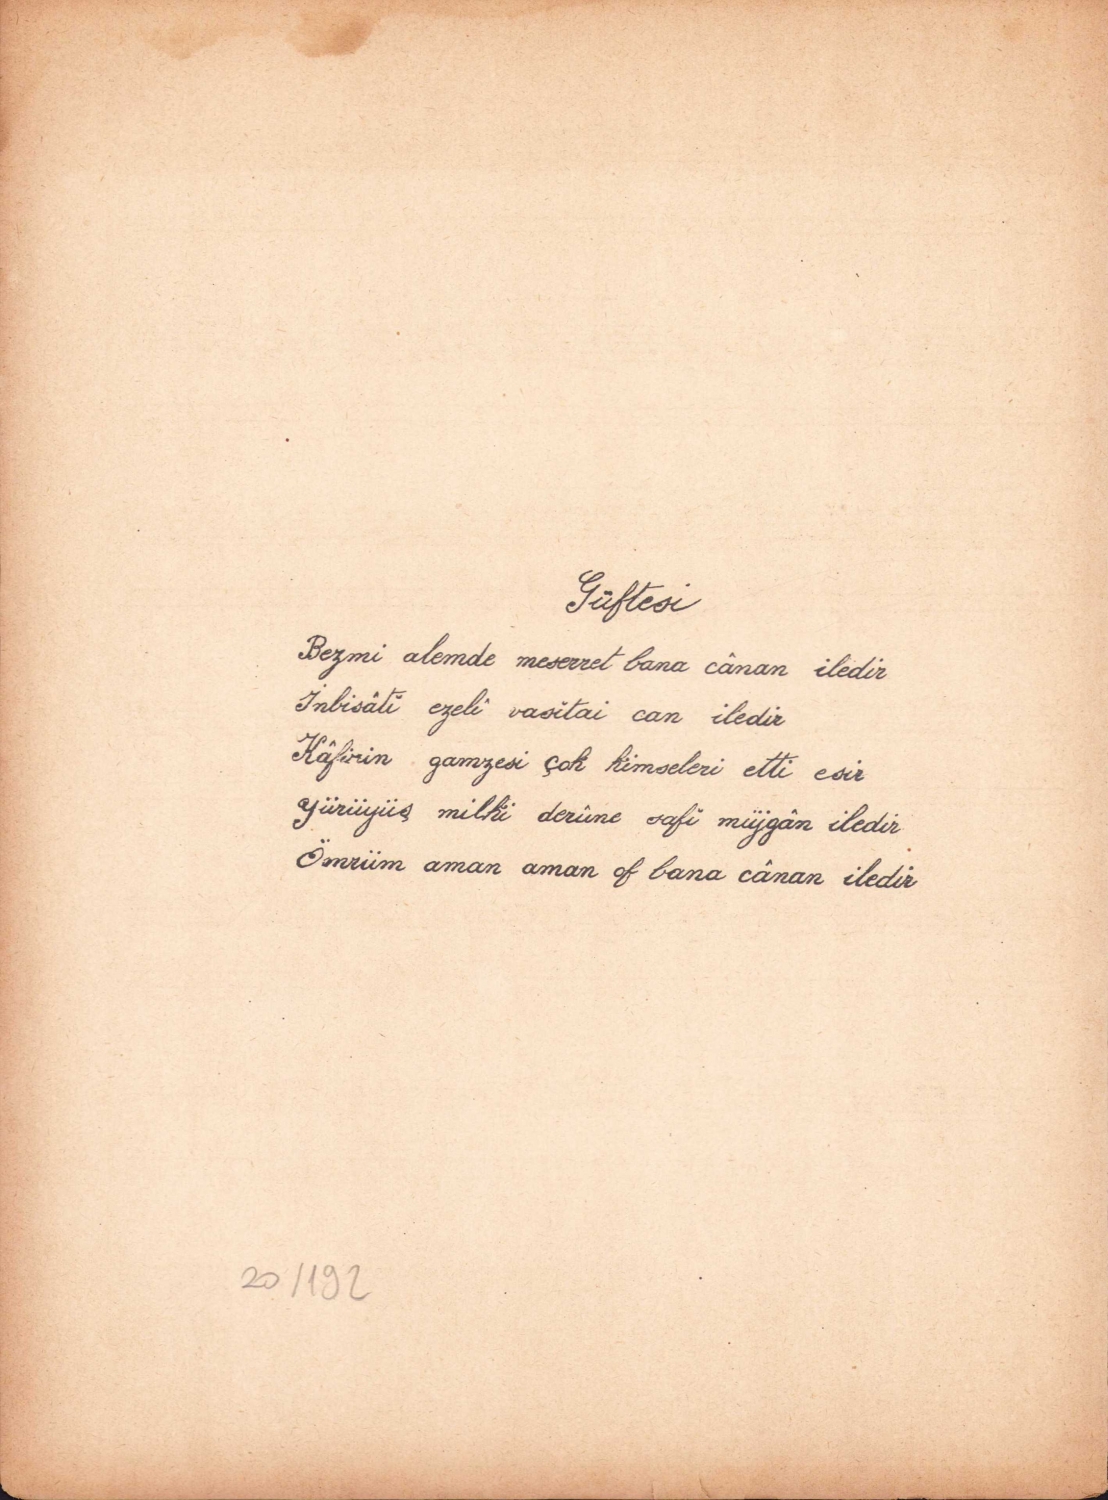 Güftesi
Bezmi alemde meserret bana cânan iledir
İnbisâtı ezelî vasıtai can iledir
Kâfirin gamzesi çok kimseleri etti esir
Yürüyüş milki derûne safı müjgân iledir
Ömrüm aman aman of bana cânan iledir
20/192